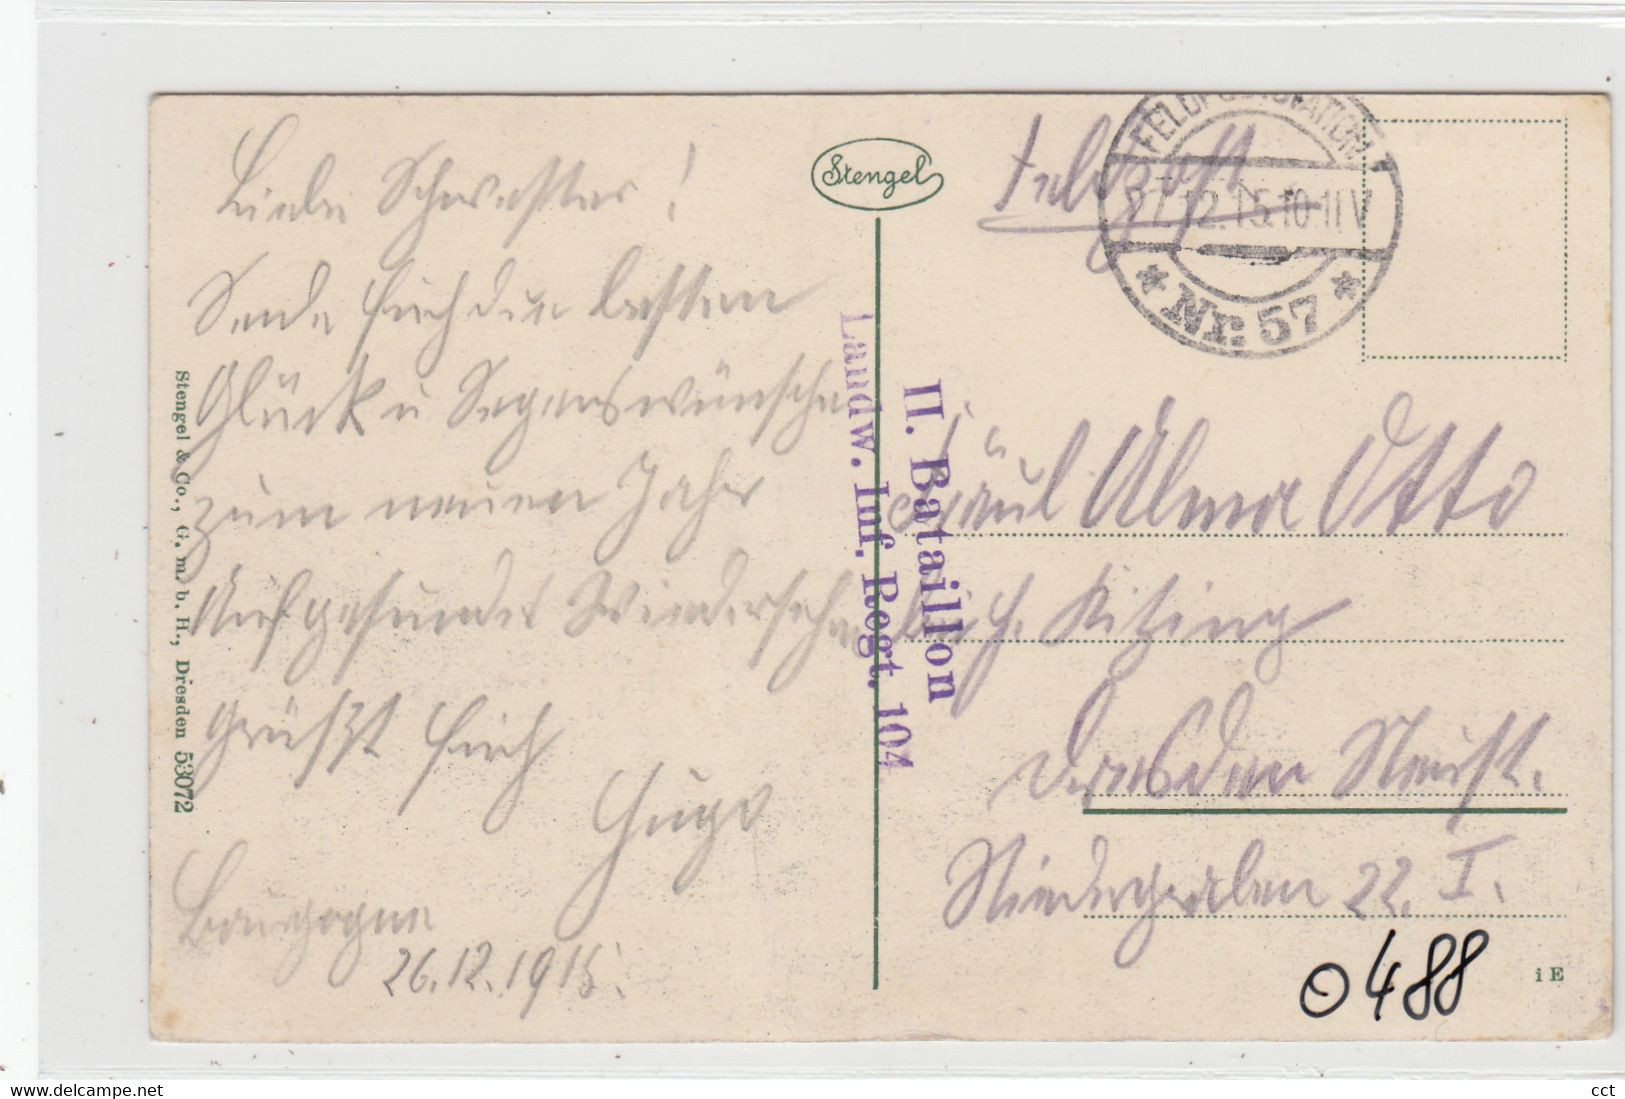 Liebe Schwester!
Sende Euch die besten
Glück u Segenswünsche
zum neuen Jahr
Auf gesundes Wiedersehen
Grüßt Euch
Hugo
Bourgogne
26.12.1915.
Stengel & Co., G. m. b. H., Dresden 53072
Stengel
II. Bataillon
Landw. Inf. Regt. 104
Feldpost
FELDPOSTSTATION
27.12.15.10-11V
* Nr. 57 *
Fräul Alma Otto
Kitzing
Dresden Neust.
Niedergraben 22. I.
0488
i E
www.delcampe.net
cct